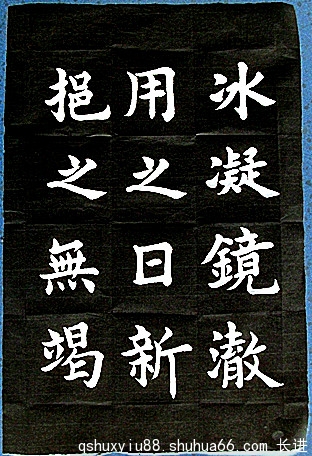 冰凝鏡澈
用之日新
挹之無竭
qshuxyiu88.shuhua66.com 长进